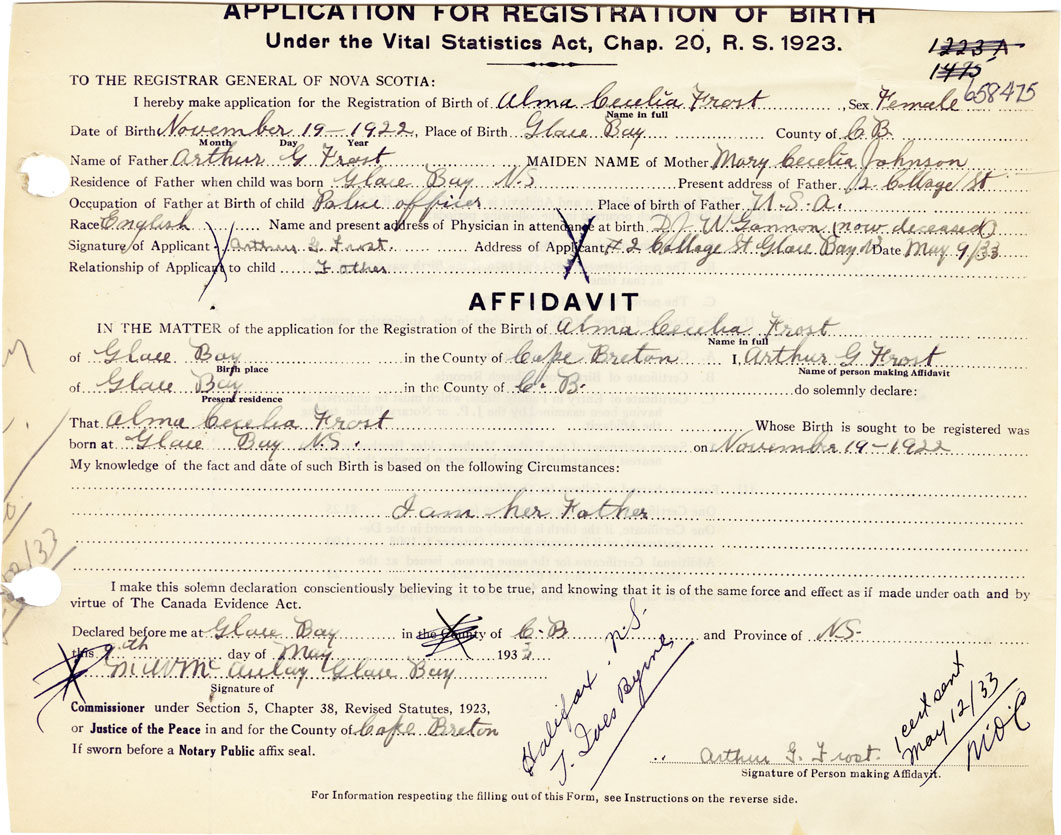 APPLICATION FOR REGISTRATION OF BIRTH
Under the Vital Statistics Act, Chap. 20, R. S. 1923.
1223 A
1475
658475
TO THE REGISTRAR GENERAL OF NOVA SCOTIA:
I hereby make application for the Registration of Birth of Alma Cecelia Frost, Sex Female
Name in full
Date of Birth November 19-1922, Place of Birth Glace Bay County of C B
Month Day Year
Name of Father Arthur G Frost MAIDEN NAME of Mother Mary Cecelia Johnson
Residence of Father when child was born Glace Bay NS Present address of Father 12 College St
Occupation of Father at Birth of child Police officer Place of birth of Father U.S.A.
Race English Name and present address of Physician in attendance at birth Dr W Gannon (now deceased)
Signature of Applicant Arthur G Frost. Address of Applicant 2 College St Glace Bay Date May 9/33
Relationship of Applicant to child Father
AFFIDAVIT
IN THE MATTER of the application for the Registration of the Birth of Alma Cecelia Frost
Name in full
of Glace Bay in the County of Cape Breton I, Arthur G Frost
Birth place Name of person making Affidavit
of Glace Bay in the County of C. B. do solemnly declare:
Present residence
That Alma Cecelia Frost Whose Birth is sought to be registered was
born at Glace Bay N.S. on November 19-1922
My knowledge of the fact and date of such Birth is based on the following Circumstances:
I am her Father
I make this solemn declaration conscientiously believing it to be true, and knowing that it is of the same force and effect as if made under oath and by
virtue of The Canada Evidence Act.
Declared before me at Glace Bay in the County of C-B and Province of NS.
this 9th day of May 1933
McAulay Glace Bay
Signature of
Commissioner under Section 5, Chapter 38, Revised Statutes, 1923,
or Justice of the Peace in and for the County of Cape Breton
If sworn before a Notary Public affix seal.
Halifax, N.S.
J. Ives Byrne
1 cert sent
May 12/33
Arthur G. Frost.
Signature of Person making Affidavit.
For Information respecting the filling out of this Form, see Instructions on the reverse side.